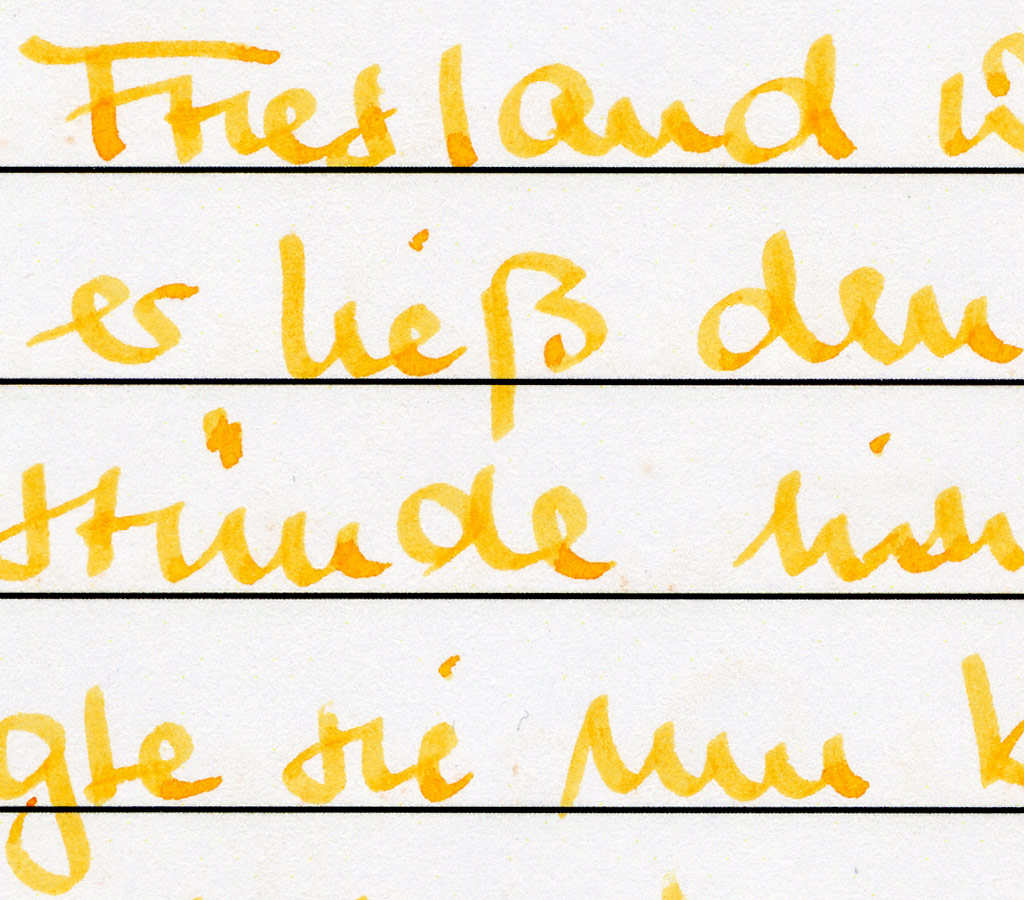 Friesland
es ließ den
stünde
gte sie nun